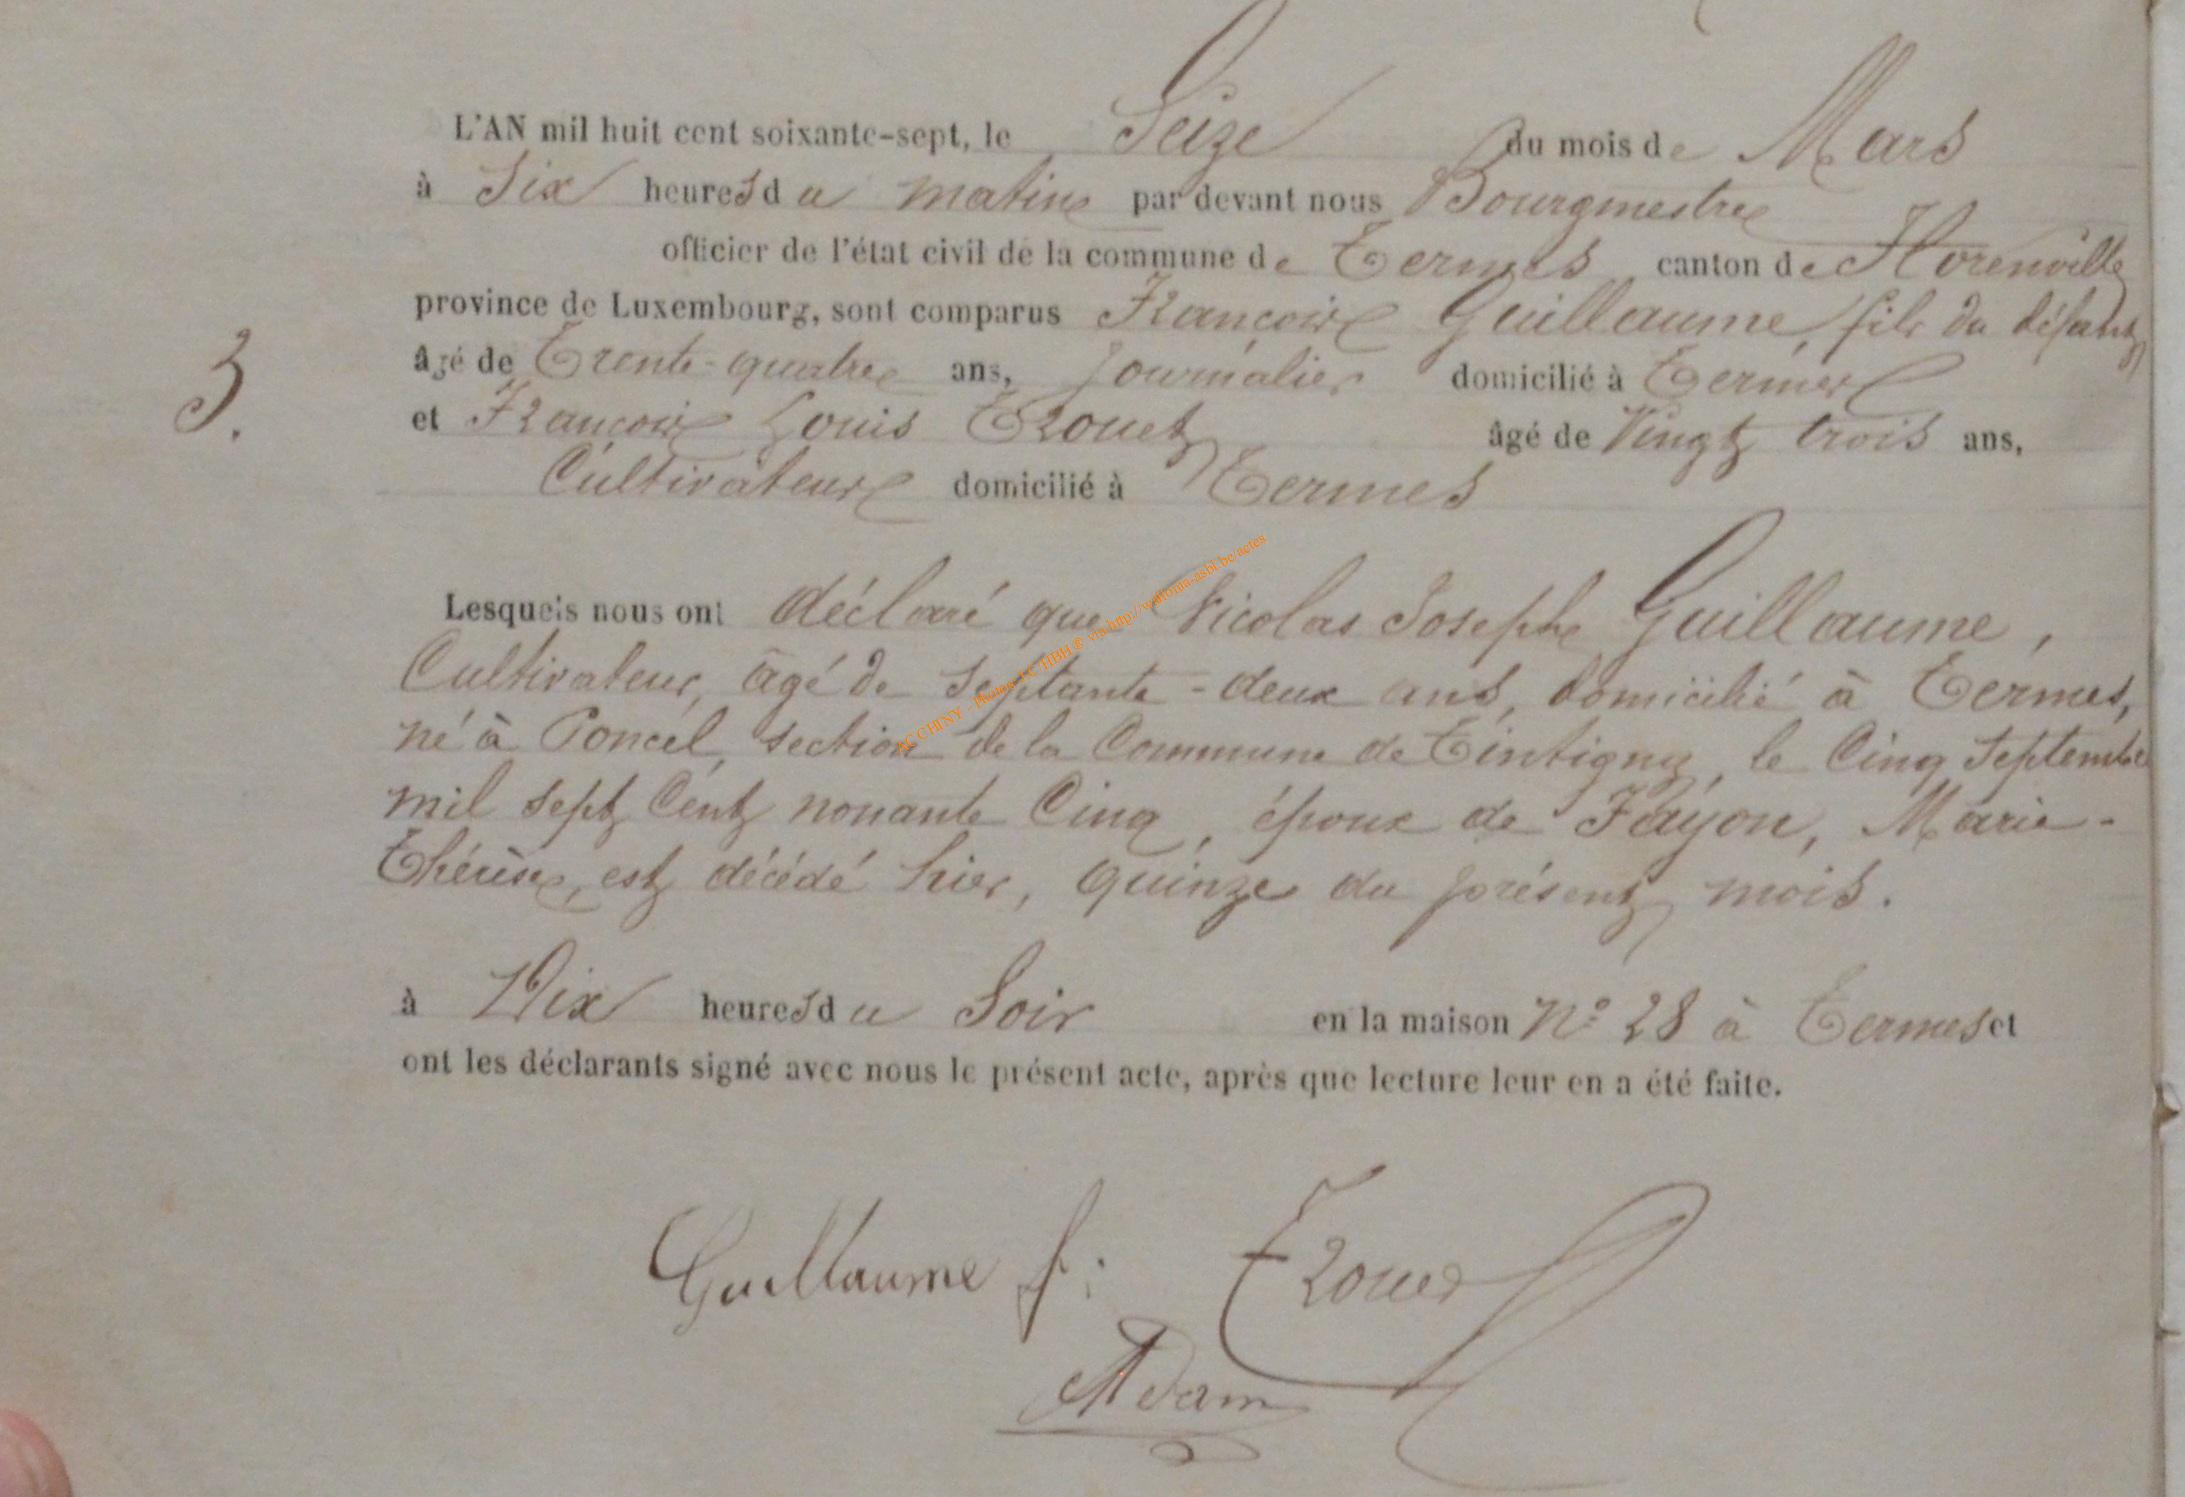 L'AN mil huit cent soixante-sept, le Seize du mois de Mars
à Six heures du matin par devant nous Bourgmestre
officier de l'état civil de la commune de Termes canton de Florenville
province de Luxembourg, sont comparus François Guillaume, fils du défunt
âgé de Trente-quatre ans, Journalier domicilié à Termes
3.
et François Louis Trouet âgé de Vingt trois ans,
Cultivateur domicilié à Termes
Lesquels nous ont déclaré que Nicolas Joseph Guillaume,
Cultivateur, âgé de septante-deux ans, domicilié à Termes,
né à Poncel, section de la Commune de Tintigny, le Cinq Septembre
mil sept Cent nonante Cinq, époux de Fayon, Marie-
Thérèse, est décédé hier, quinze du présent mois.
à Dix heures du Soir en la maison N° 28 à Termes et
ont les déclarants signé avec nous le présent acte, après que lecture leur en a été faite.
Guillaume f: Trouet
Adam
AC CHINY - Photos J-C HBH © via http://wallonia-asbl.be/actes